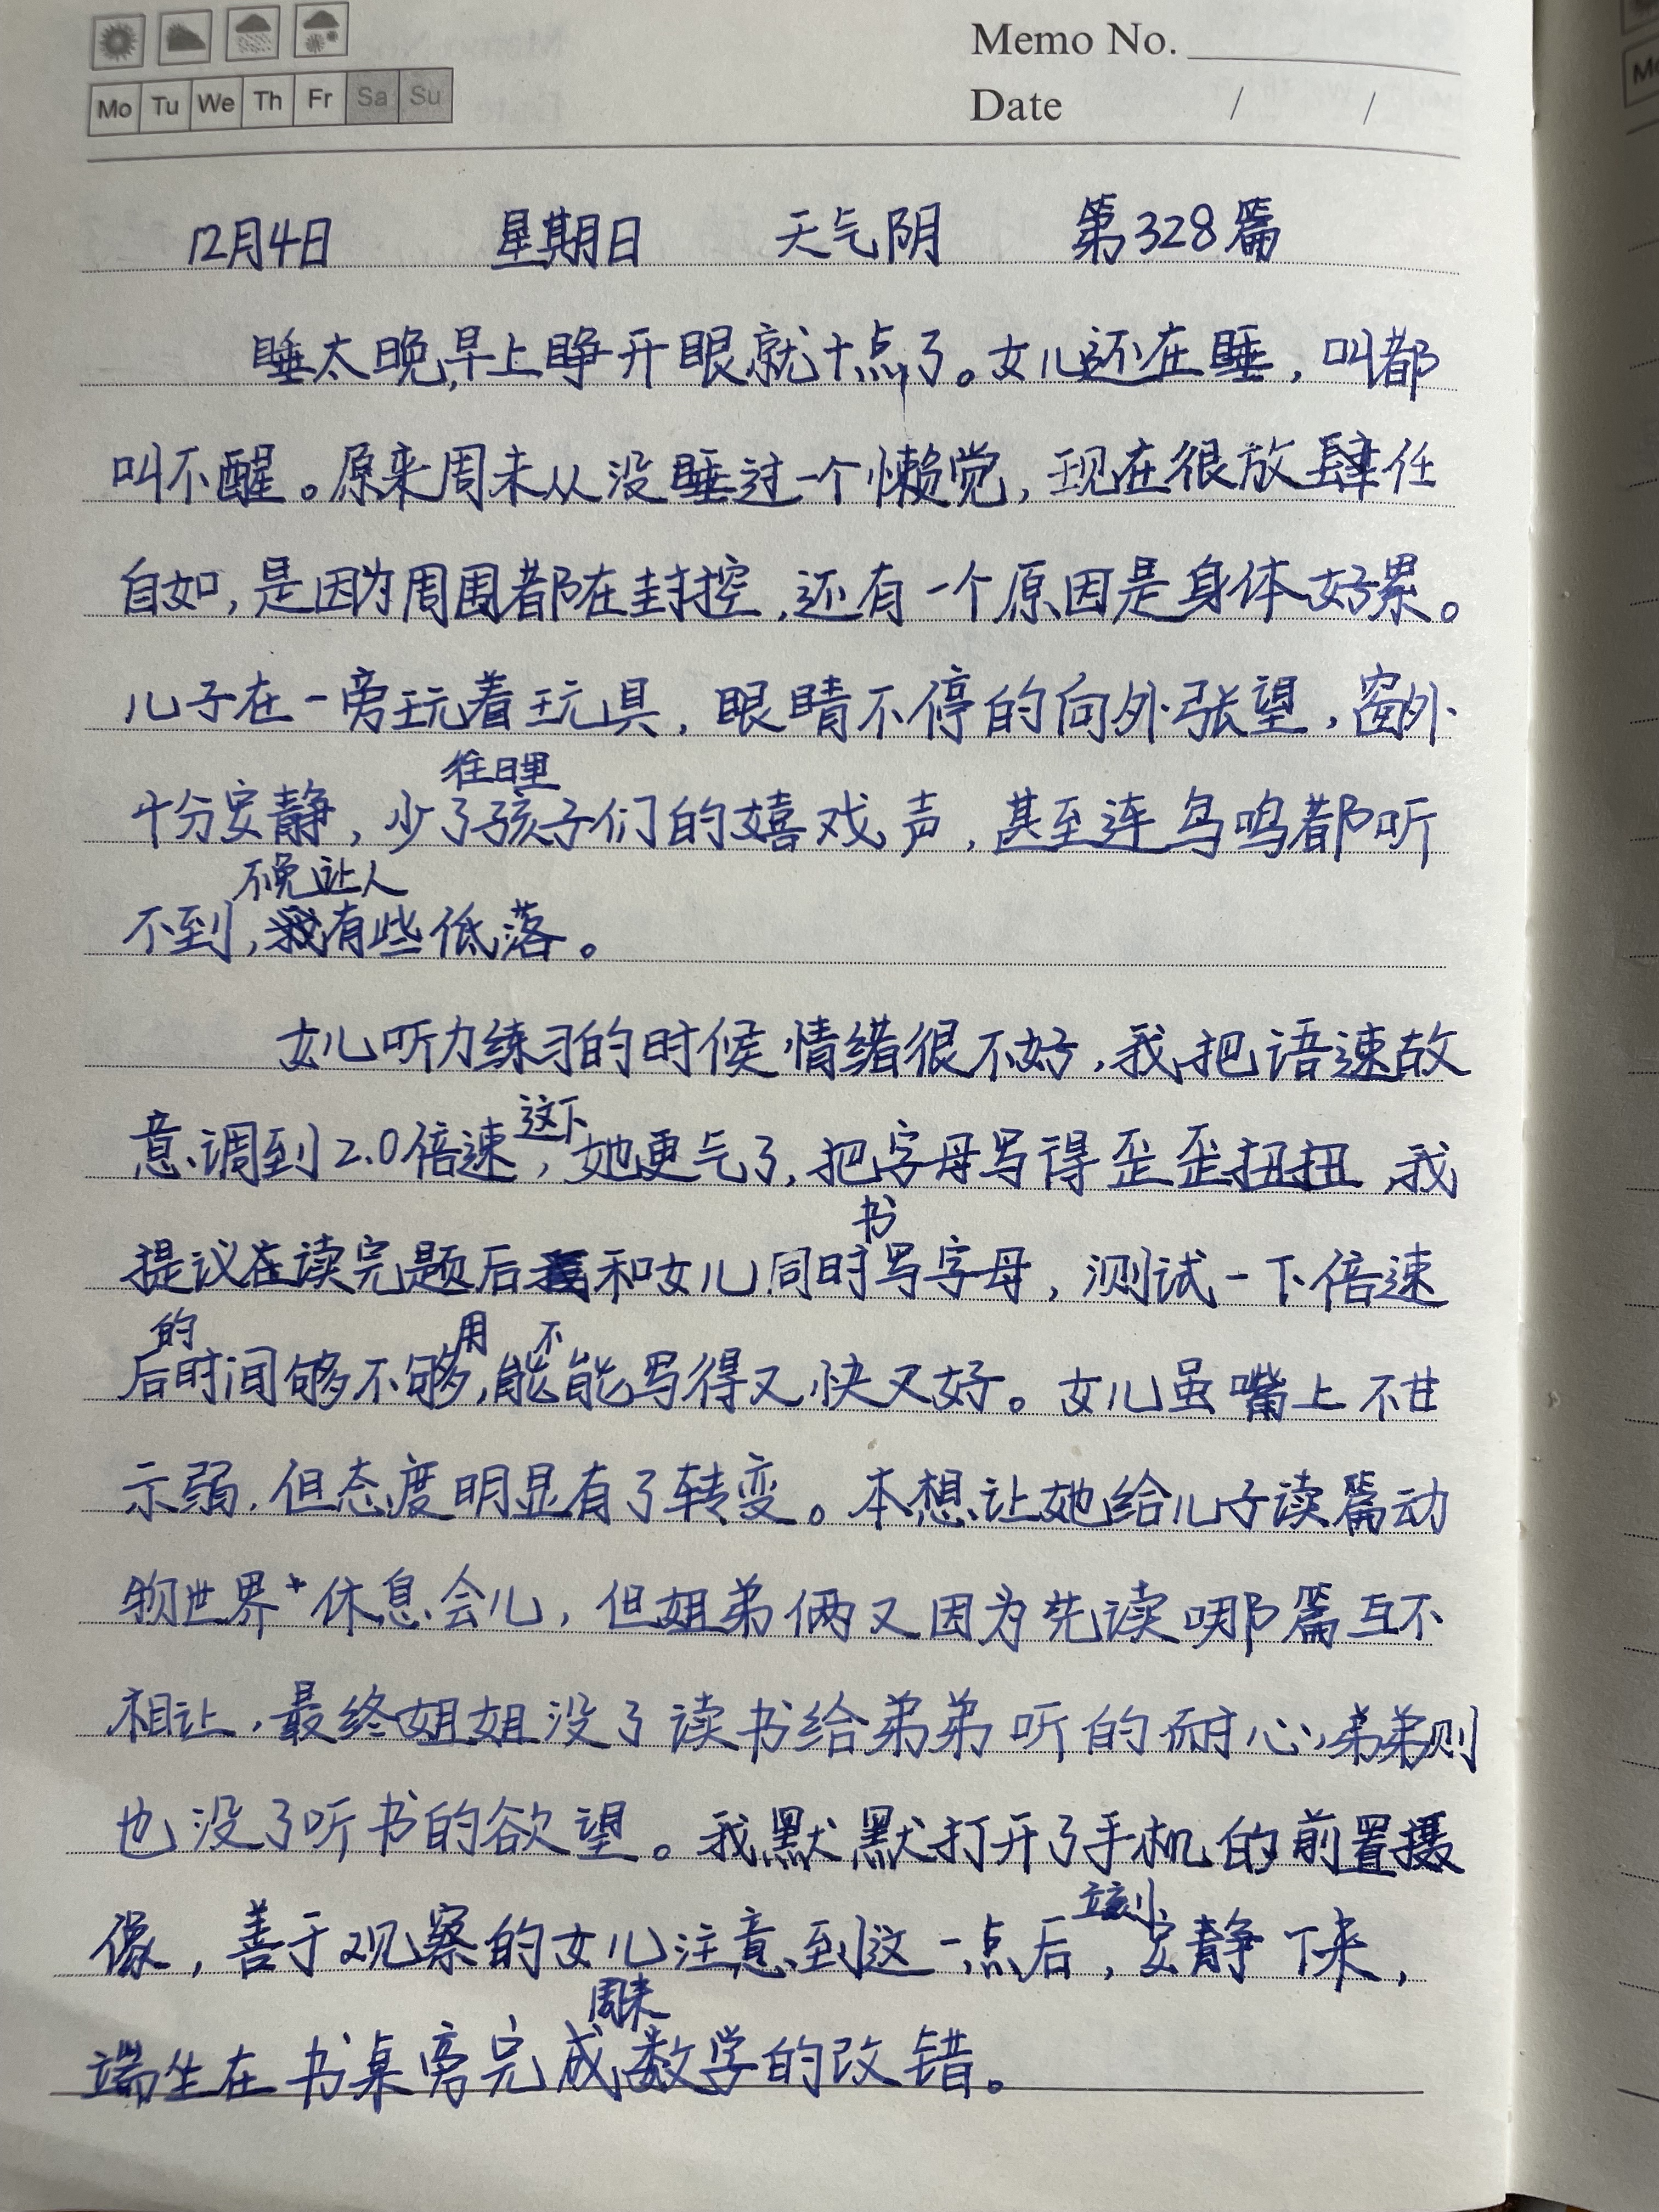 Memo No.
Mo Tu We Th Fr Sa Su
Date / /
12月4日 星期日 天气阴 第328篇
睡太晚,早上睁开眼就十点了。女儿还在睡,叫都
叫不醒。原来周末从没睡过一个懒觉,现在很放肆任
自如,是因为周围都在封控,还有一个原因是身体好累。
儿子在一旁玩着玩具,眼睛不停的向外张望,窗外
往日里
十分安静,少了孩子们的嬉戏声,甚至连鸟鸣都听
不免让人
不到,有些低落。
女儿听力练习的时候,情绪很不好,我把语速故
这下
意调到2.0倍速,她更气了,把字母写得歪歪扭扭,我
书
提议在读完题后和女儿同时写字母,测试一下倍速
的 用 不
后时间够不够,能能写得又快又好。女儿虽嘴上不甘
示弱,但态度明显有了转变。本想让她给儿子读篇动
物世界+休息会儿,但姐弟俩又因为先读哪篇互不
相让,最终姐姐没了读书给弟弟听的耐心,弟弟则
也没了听书的欲望。我默默打开了手机的前置摄
立刻
像,善于观察的女儿注意到这一点后,安静下来,
周末
端坐在书桌旁完成数学的改错。